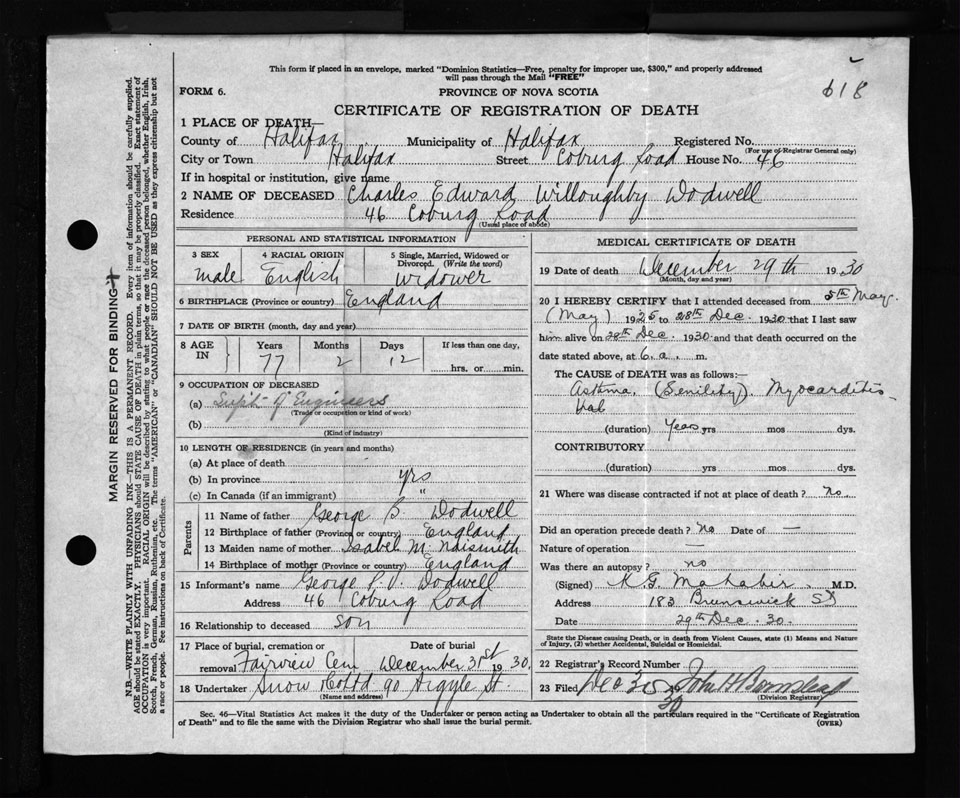 618
This form if placed in an envelope, marked "Dominion Statistics—Free, penalty for improper use, $300," and properly addressed
will pass through the Mail "FREE"
FORM 6.
PROVINCE OF NOVA SCOTIA
CERTIFICATE OF REGISTRATION OF DEATH
1 PLACE OF DEATH—
County of Halifax Municipality of Halifax Registered No.
(For use of Registrar General only)
City or Town Halifax Street Coburg Road House No. 46
If in hospital or institution, give name
2 NAME OF DECEASED Charles Edward Willoughby Dodwell
Residence 46 Coburg Road
(Usual place of abode)
PERSONAL AND STATISTICAL INFORMATION
3 SEX 4 RACIAL ORIGIN 5 Single, Married, Widowed or
Divorced. (Write the word)
Male English Widower
6 BIRTHPLACE (Province or country) England
7 DATE OF BIRTH (month, day and year)
8 AGE IN Years Months Days If less than one day,
77 2 12
hrs. or min.
9 OCCUPATION OF DECEASED
(a) of Engineers
(Trade or occupation or kind of work)
(b)
(Kind of industry)
10 LENGTH OF RESIDENCE (in years and months)
(a) At place of death
(b) In province yrs
(c) In Canada (if an immigrant) "
Parents
11 Name of father George Dodwell
12 Birthplace of father (Province or country) England
13 Maiden name of mother Isabel M. Naismith
14 Birthplace of mother (Province or country) England
15 Informant's name George Dodwell
Address 46 Coburg Road
16 Relationship to deceased son
17 Place of burial, cremation or Date of burial
removal Fairview Cem December 31st 1930.
18 Undertaker Snow & Co Ltd 90 Argyle St
(Name and address)
MEDICAL CERTIFICATE OF DEATH
19 Date of death December 29th 1930
(Month, day and year)
20 I HEREBY CERTIFY that I attended deceased from 5th May.
(May) 1925 to 28th Dec. 1930 that I last saw
him alive on 28th Dec. 1930 and that death occurred on the
date stated above, at 6. a. m.
The CAUSE of DEATH was as follows:—
Asthma, (Senility). Myocarditis
(duration) Years yrs mos dys.
CONTRIBUTORY
(duration) yrs mos dys.
21 Where was disease contracted if not at place of death? No.
Did an operation precede death? No Date of —
Nature of operation —
Was there an autopsy? no
(Signed) K. G. Mahabir M.D.
Address 183 Brunswick St
Date 29th Dec. 30.
State the Disease causing Death, or in death from Violent Causes, state (1) Means and Nature
of Injury, (2) whether Accidental, Suicidal or Homicidal.
22 Registrar's Record Number
23 Filed Dec 30 30 John H
(Division Registrar)
Sec. 46—Vital Statistics Act makes it the duty of the Undertaker or person acting as Undertaker to obtain all the particulars required in the "Certificate of Registration
of Death" and to file the same with the Division Registrar who shall issue the burial permit.
(OVER)
MARGIN RESERVED FOR BINDING
N.B.—WRITE PLAINLY WITH UNFADING INK—THIS IS A PERMANENT RECORD. Every item of information should be carefully supplied.
AGE should be stated EXACTLY. PHYSICIANS should STATE CAUSE OF DEATH in plain terms, so that it may be properly classified. Exact statement of
OCCUPATION is very important. RACIAL ORIGIN will be described by stating to what people or race the deceased person belonged, whether English, Irish,
Scotch, French, German, Russian, Ruthenian, etc. The terms "AMERICAN" or "CANADIAN" SHOULD NOT BE USED as they express citizenship but not
a race or people. See instructions on back of Certificate.